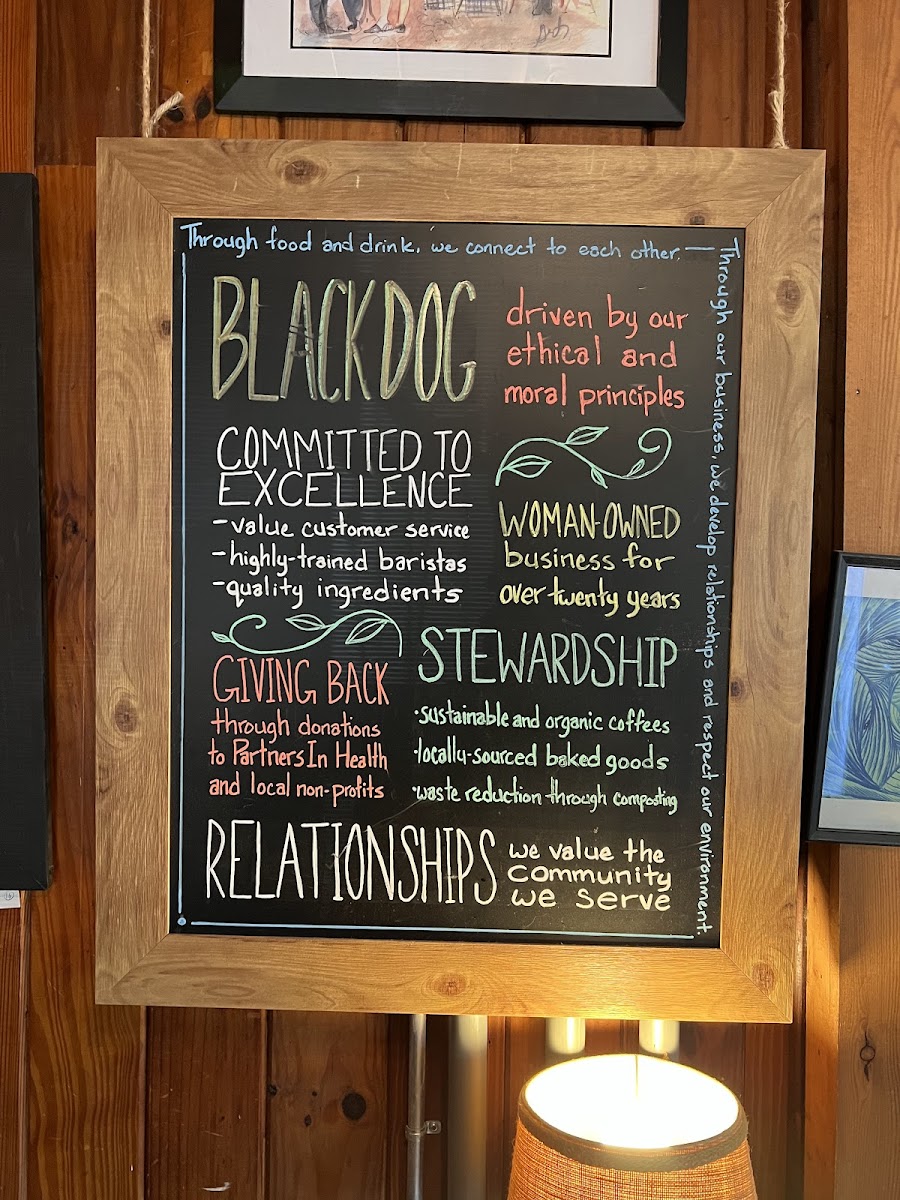 Through food and drink, we connect to each other. —
Through our business, we develop relationships and respect our environment.
BLACK DOG
driven by our
ethical and
moral principles
COMMITTED TO
EXCELLENCE
-value customer service
-highly-trained baristas
-quality ingredients
WOMAN-OWNED
business for
over twenty years
GIVING BACK
through donations
to Partners In Health
and local non-profits
STEWARDSHIP
·sustainable and organic coffees
·locally-sourced baked goods
·waste reduction through composting
RELATIONSHIPS
we value the
community
we serve